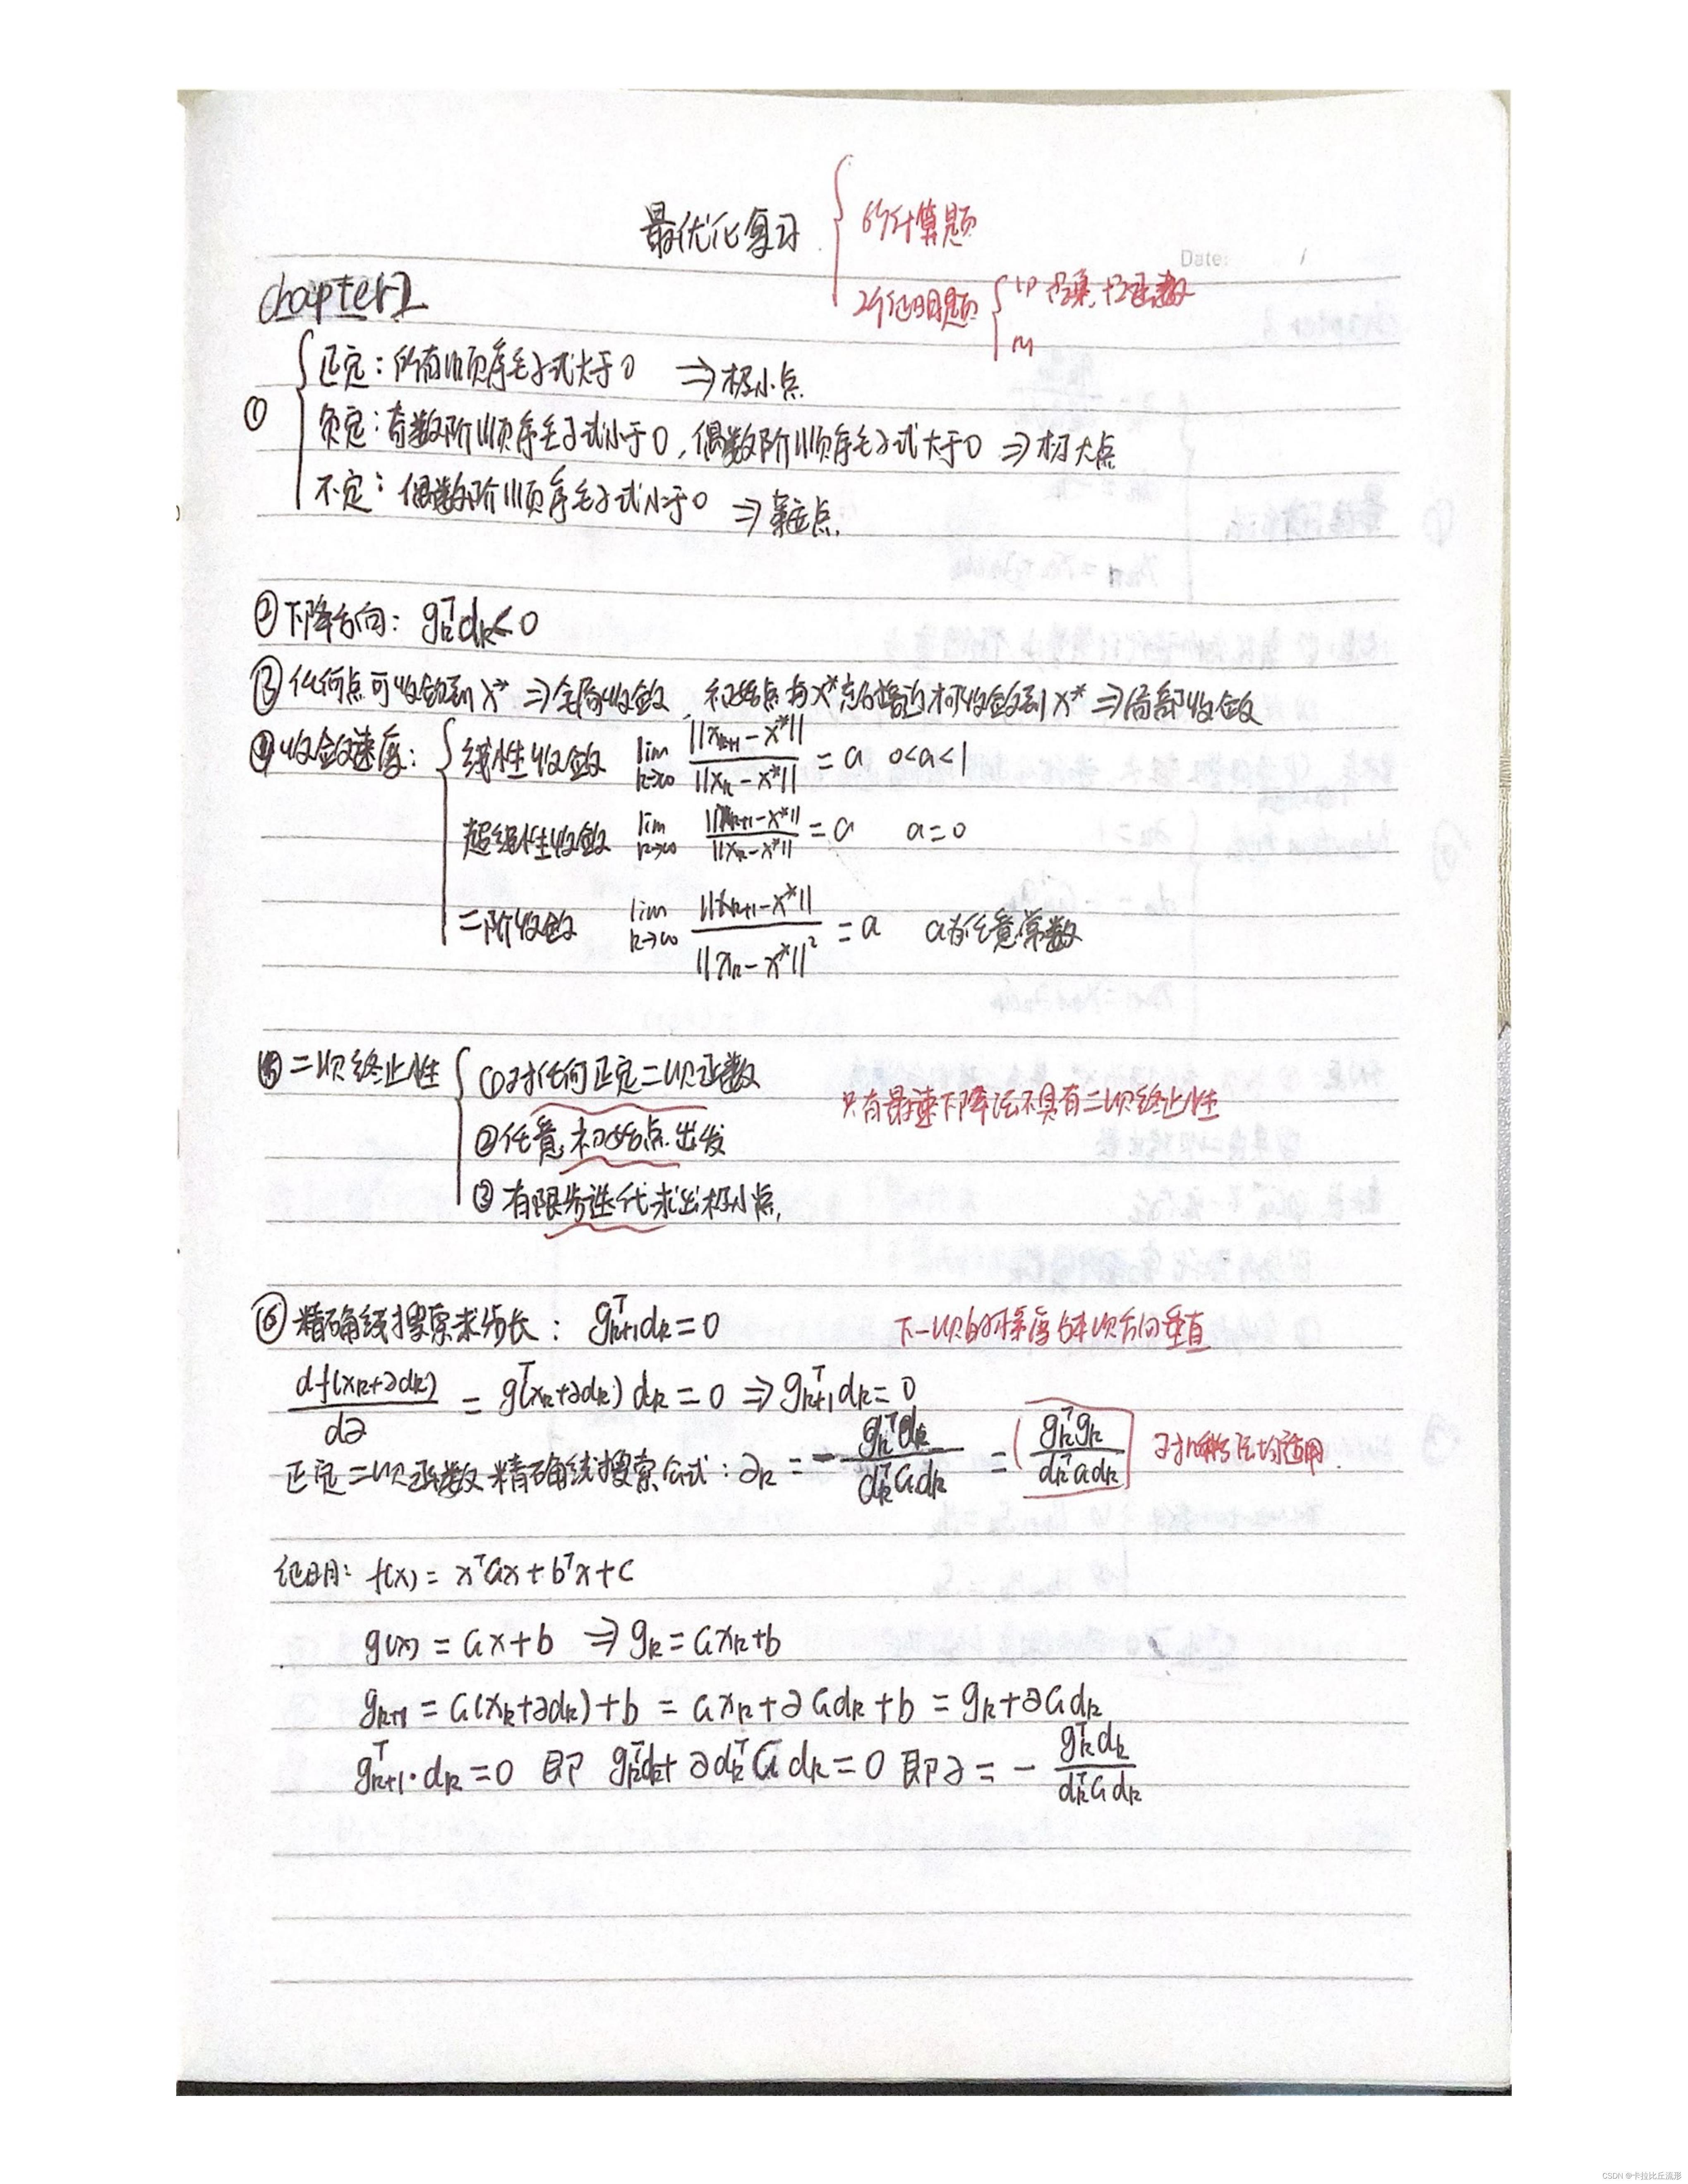 最优化复习
6个计算题
Date: /
2个证明题 (1) 凸集,凸函数
(2)
chapter1
① 正定:所有顺序主子式大于0 ⇒极小点
负定:奇数阶顺序主子式小于0,偶数阶顺序主子式大于0 ⇒极大点
不定:偶数阶顺序主子式小于0 ⇒鞍点.
② 下降方向: gₖᵀdₖ<0
③ 任何点可收敛到X* ⇒全局收敛, 初始点与X*充分接近才可收敛到X* ⇒局部收敛
④ 收敛速度: 线性收敛 lim k→∞ ||xₖ₊₁-x*|| / ||xₖ-x*|| = a 0<a<1
超线性收敛 lim k→∞ ||xₖ₊₁-x*|| / ||xₖ-x*|| = a a=0
二阶收敛 lim k→∞ ||xₖ₊₁-x*|| / ||xₖ-x*||² = a a为任意常数
⑤ 二次终止性 ①对任何正定二次函数
只有最速下降法不具有二次终止性
②任意初始点出发
③有限步迭代求出极小点.
⑥ 精确线搜索求步长: gₖ₊₁ᵀdₖ=0 下一次的梯度与本次方向垂直
df(xₖ+∂dₖ) / d∂ = gᵀ(xₖ+∂dₖ) dₖ=0 ⇒ gₖ₊₁ᵀdₖ=0
正定二次函数精确线搜索公式: ∂ₖ = - gₖᵀdₖ / dₖᵀGdₖ = gₖᵀgₖ / dₖᵀGdₖ 对几种方法均适用.
证明: f(x) = xᵀGx+bᵀx+c
g(x) = Gx+b ⇒ gₖ=Gxₖ+b
gₖ₊₁ = G(xₖ+∂dₖ)+b = Gxₖ+∂Gdₖ+b = gₖ+∂Gdₖ
gₖ₊₁ᵀ·dₖ=0 即 gₖᵀdₖ+∂dₖᵀGdₖ=0 即∂= - gₖᵀdₖ / dₖᵀGdₖ
CSDN @卡拉比丘流形